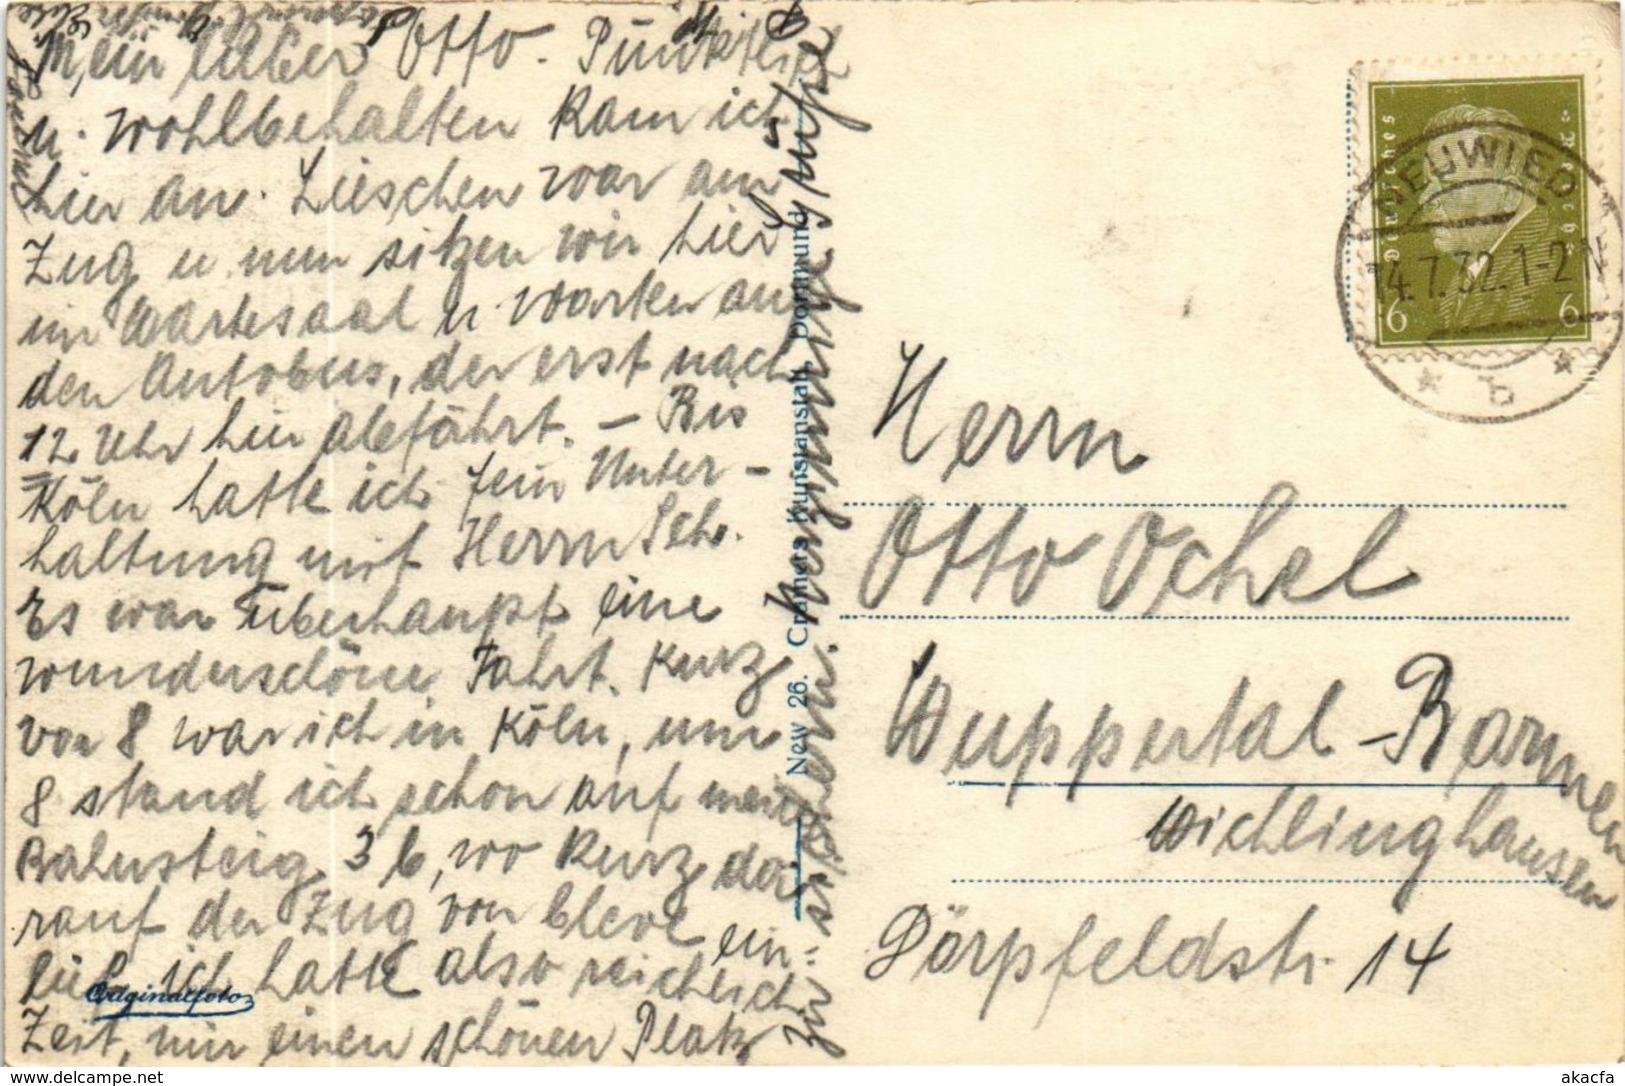 Mein lieber Otto. Pünktlich
u. wohlbehalten kam ich
hier an. Lieschen war am
Zug u. nun sitzen wir hier
im Wartesaal u. warten auf
den Autobus, der erst nach
12 Uhr hier abfährt. – Bis
Köln hatte ich fein Unter-
haltung mit Herrn Sch.
Es war überhaupt eine
wunderschöne Fahrt. Kurz
vor 8 war ich in Köln, um
8 stand ich schon auf mein
Bahnsteig 3 b, wo kurz da
rauf der Zug von Cleve ein-
lief. ich hatte also reichlich
Zeit, mir einen schönen Platz
zu sichern. Herzinnige Grüße
Originalfoto
New 26. Cramers Kunstanstalt, Dortmund
Deutsches Reich
6 6
NEUWIED
14.7.32. 1-2 N.
* b *
Herrn
Otto Ochel
Wuppertal-Barmen
Wichlinghausen
Dörpfeldstr. 14
www.akacfa.com
akacfa